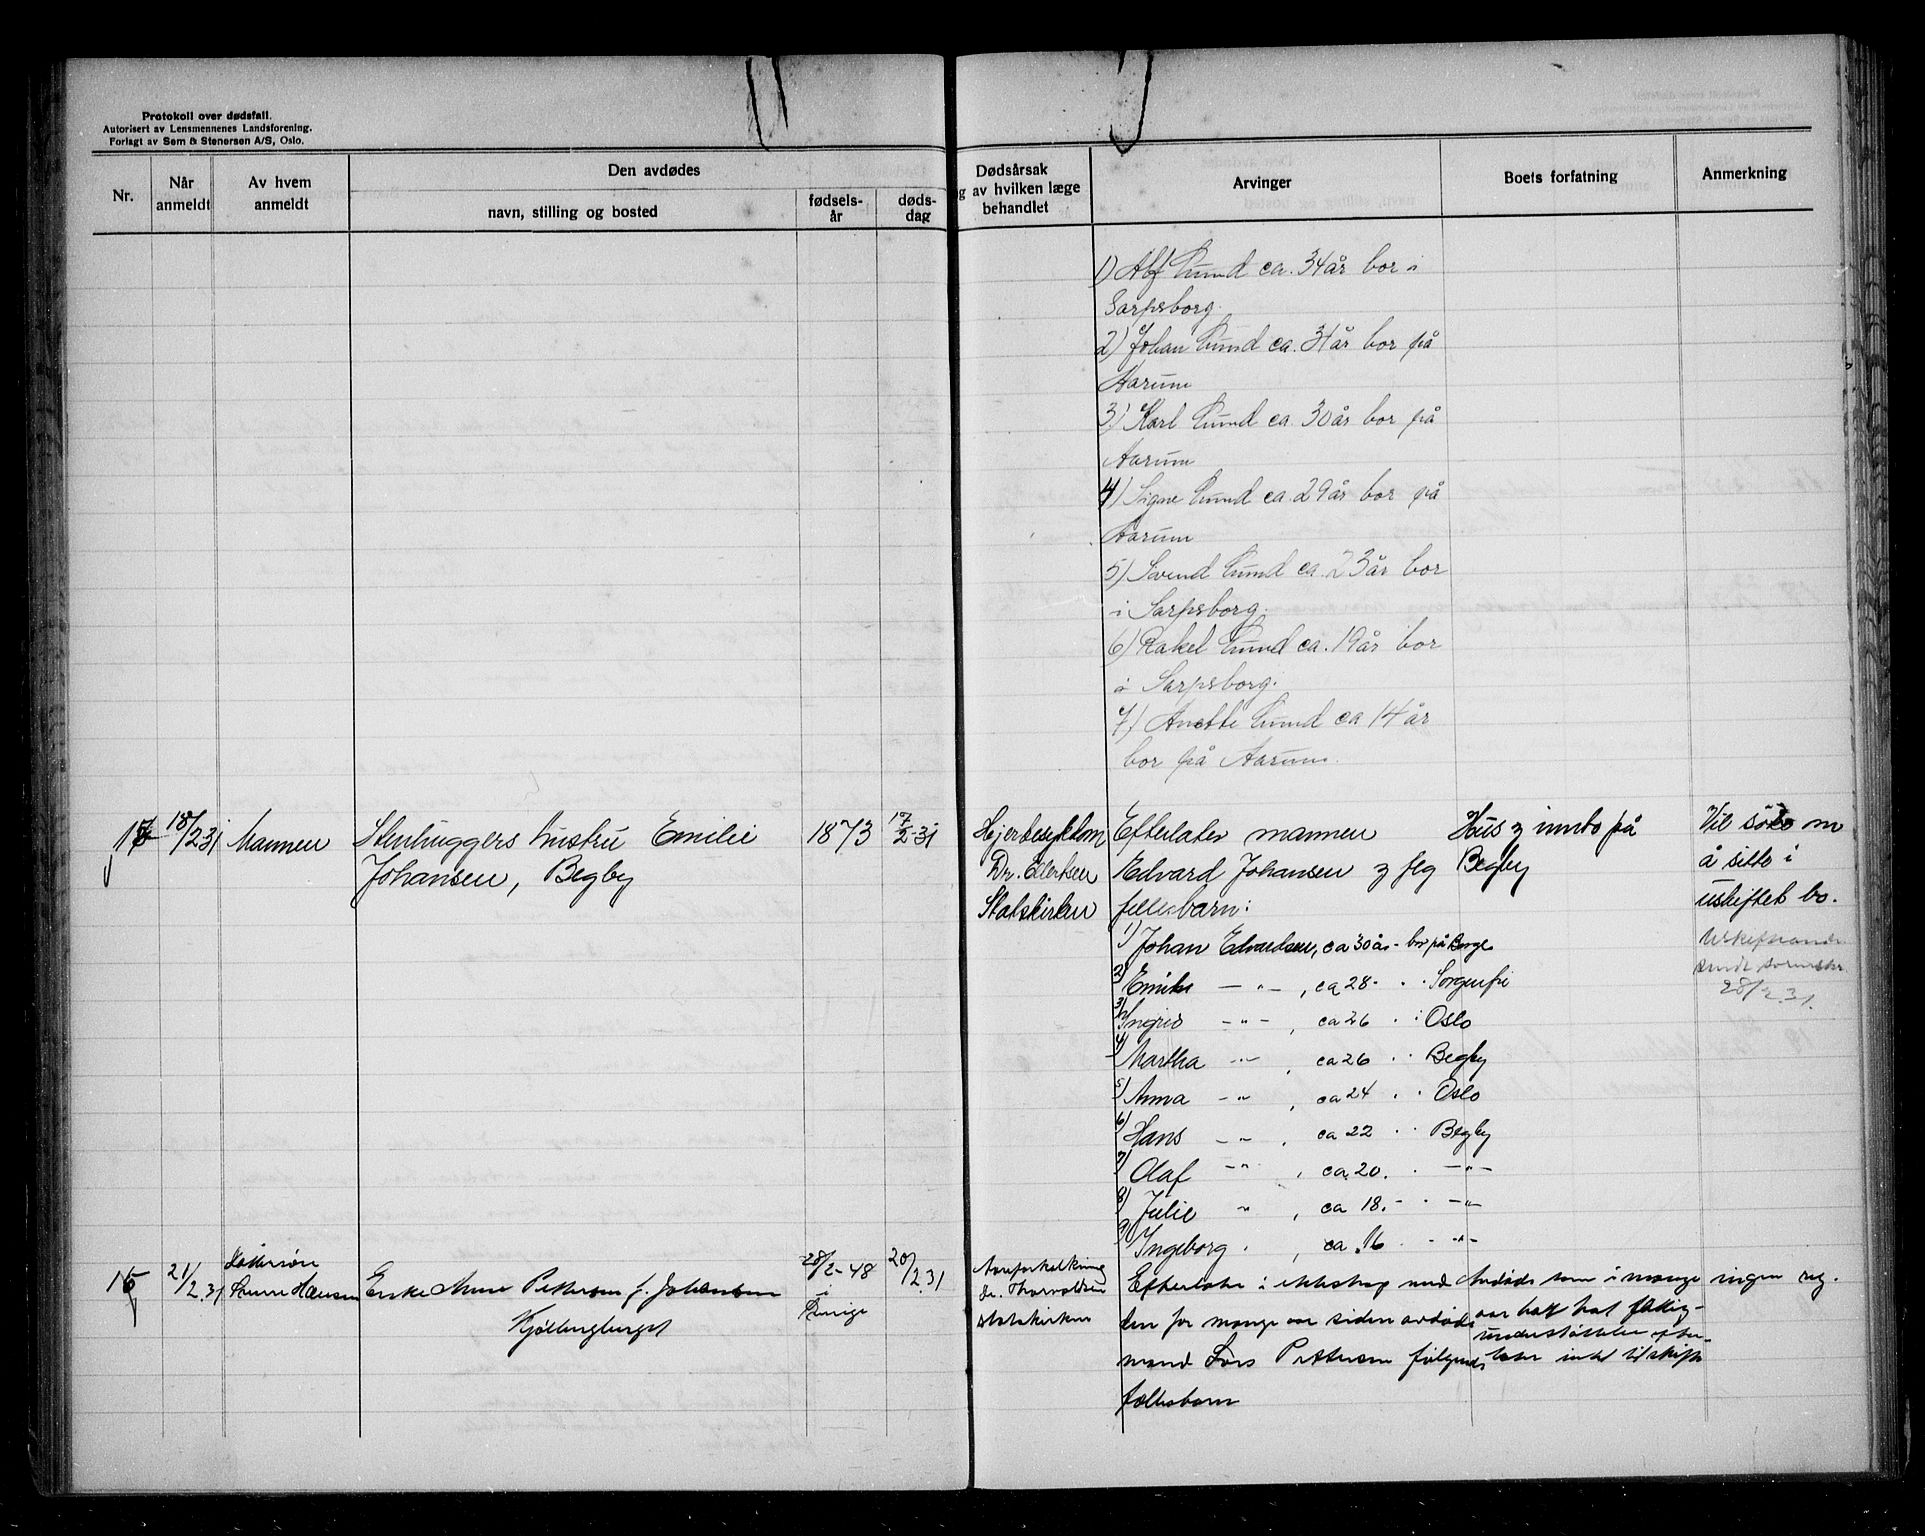 Protokoll over dødsfall.
Autorisert av Lensmennenes Landsforening.
Forlagt av Sem & Stenersen A/S, Oslo.
Nr.
Når anmeldt
Av hvem anmeldt
Den avdødes
navn, stilling og bosted
fødselsår
dødsdag
Dødsårsak
og av hvilken læge
behandlet
Arvinger
Boets forfatning
Anmerkning
1) Alf Lund ca. 34 år bor i
Sarpsborg.
2) Johan Lund ca. 31 år bor på
Aarum
3) Karl Lund ca. 30 år bor på
Aarum
4) Signe Lund ca. 29 år bor på
Aarum
5) Svend Lund ca. 23 år bor
i Sarpsborg.
6) Rakel Lund ca. 19 år bor
i Sarpsborg.
7) Anette Lund ca 14 år
bor på Aarum.
18/2 31 Mannen
Stenhuggers hustru Emilie
Johansen, Begby
1873
17/2-31
Dr. Ellertsen
Statskirken
Efterlater mannen
Edvard Johansen og flg
fellesbarn:
Hus og innbo på
Begby
Vil söke om
å sitte i
uskiftet bo.
28/2.31.
1) Johan Edvardsen, ca 30 år - bor på Borge
2) Emilie — " — , ca 28 - . . Sorgenfri
3) Ingrid — " — , ca 26 . i Oslo
4) Martha — " — , ca 26 . . Begby
5) Anna — " , ca 24 . . Oslo
6) Hans — " — , ca 22 . . Begby
7) Olaf — " , ca 20. . — " —
8) Julie " , ca 18. - . — " —
9) Ingeborg . , ca 16 . - " -
15
21/2.31
Hansen
Enke Anne Pettersen f. Johansen
Kjölbergberget
28/2-48
i
Sverige
20/2.31
Aareforkalkning
dr. Thorvaldsen
statskirken
Efterlater i ekteskap med
den for mange aar siden avdøde
mand Lars Pettersen følgende
fællesbarn
Avdøde som i mange
aar har hat fattig-
understøttelse efter-
later intet til skifte
ingen reg.